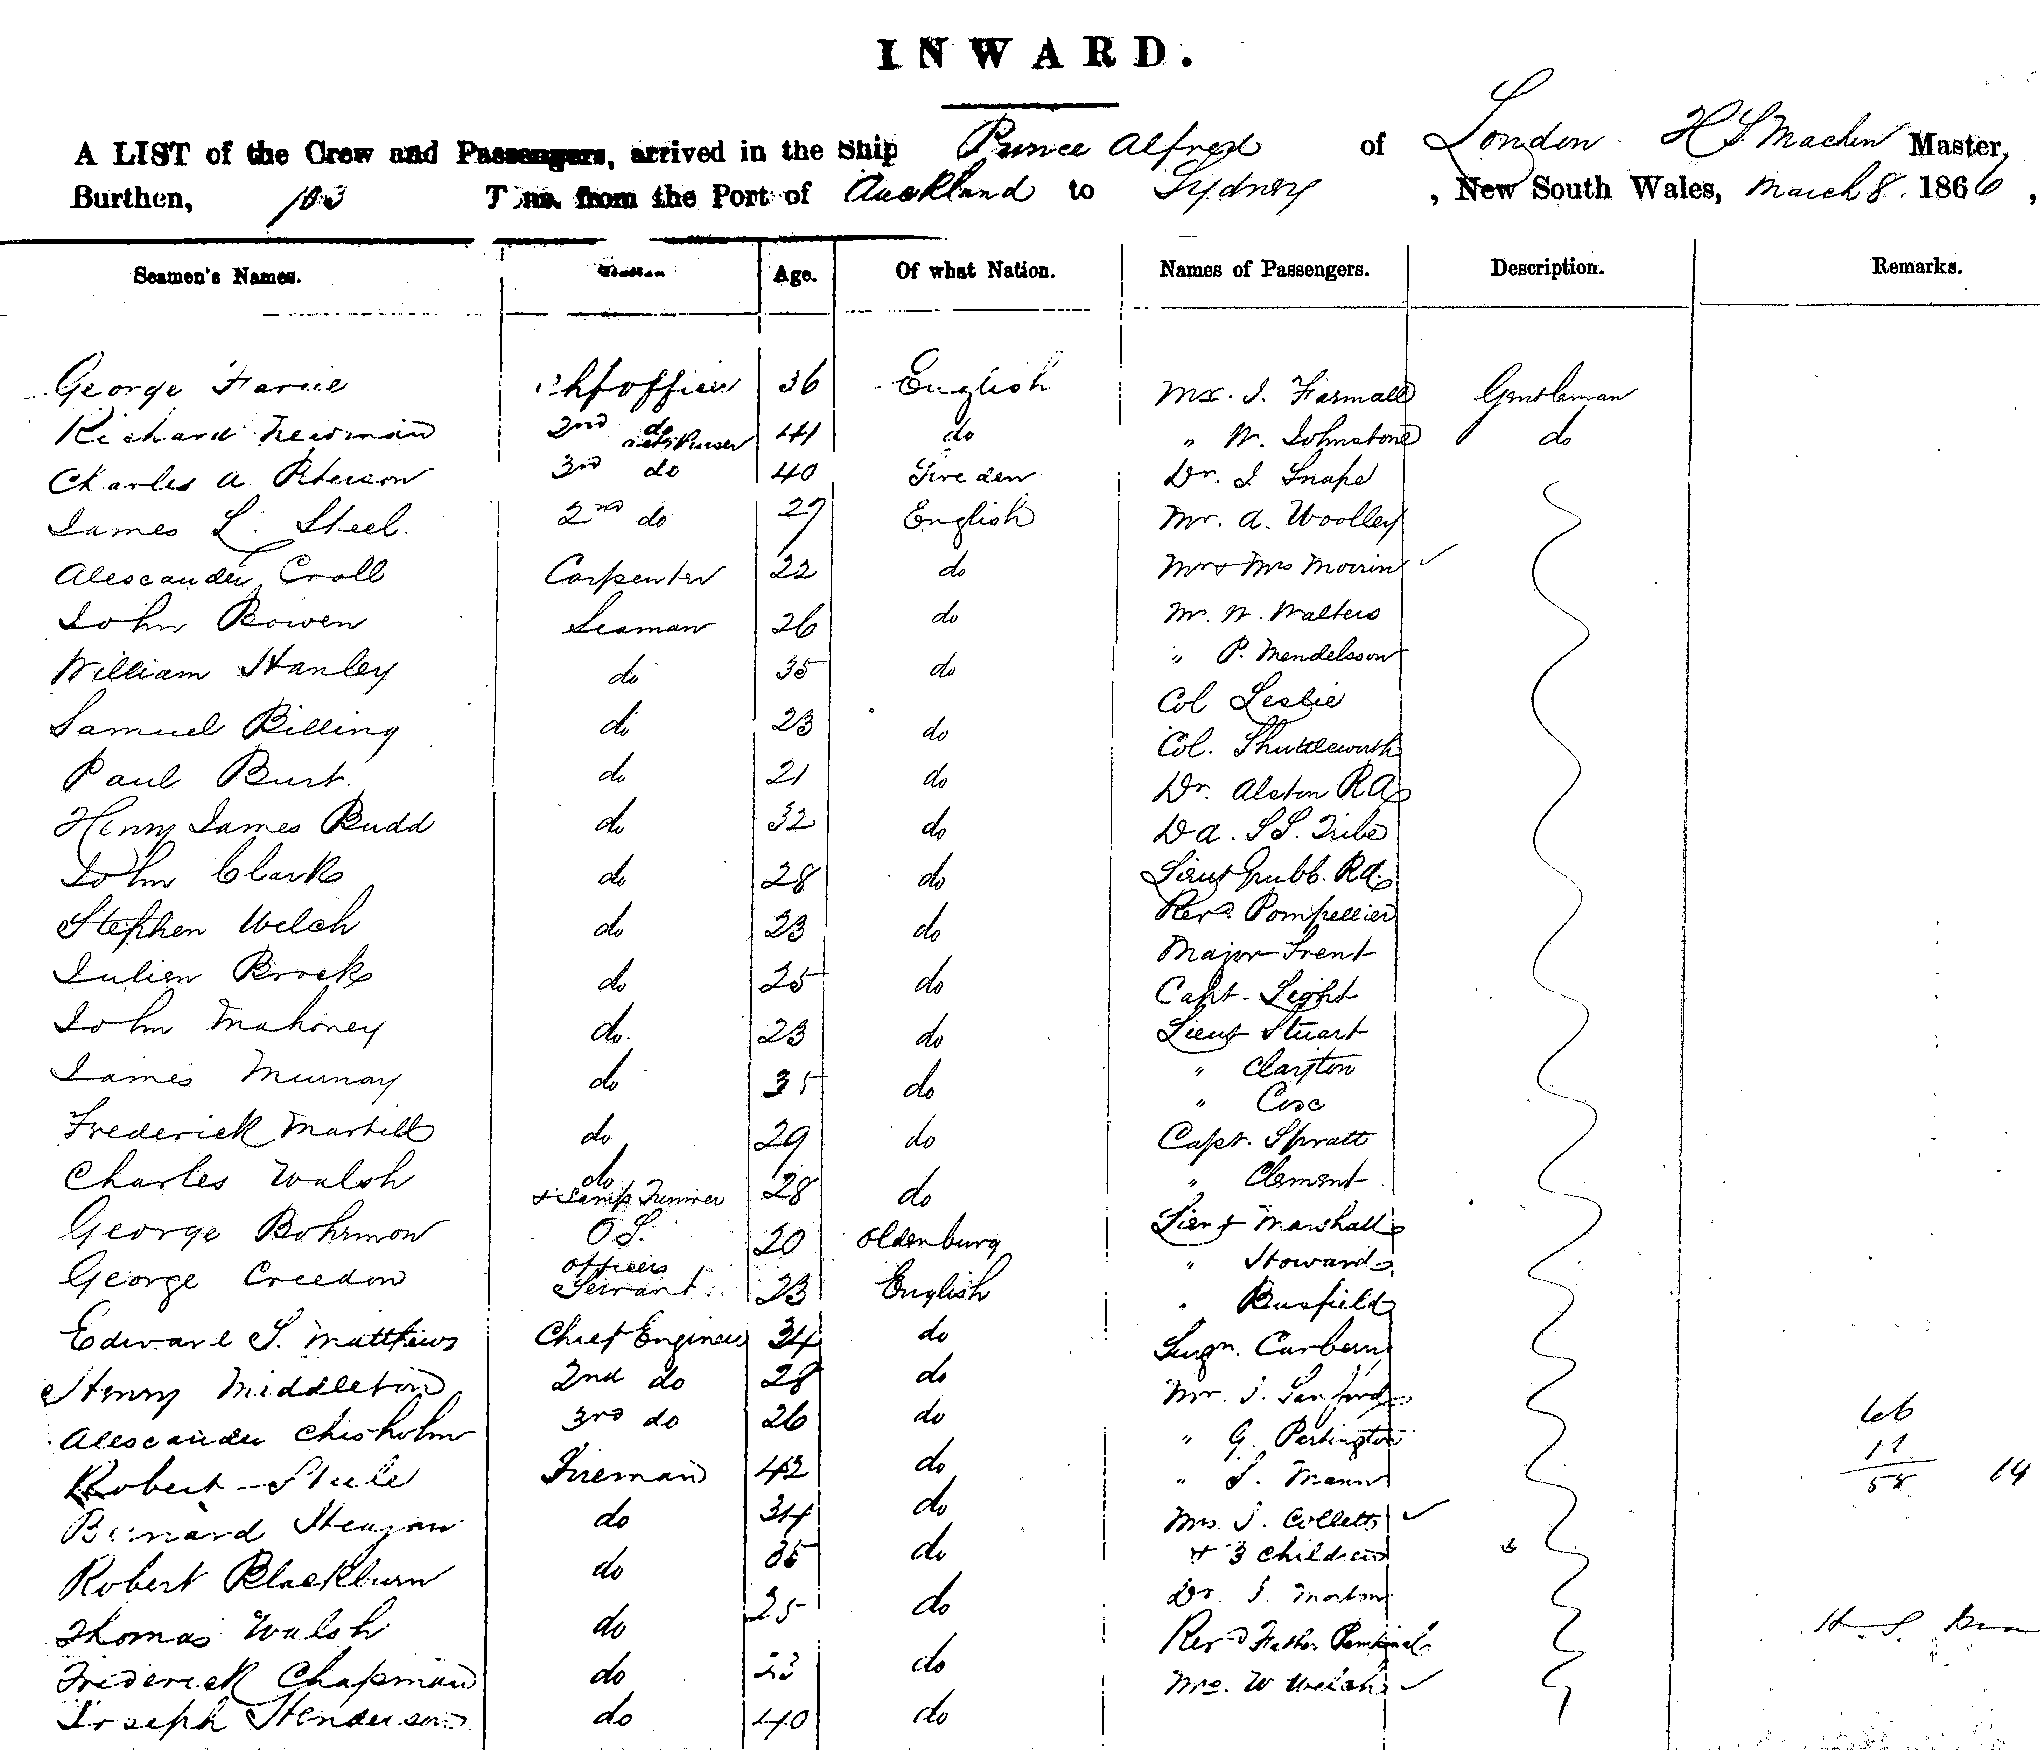 INWARD.
A LIST of the Crew and Passengers, arrived in the Ship Prince Alfred of London H S Machen Master,
Burthen, 703 Tons. from the Port of Auckland to Sydney, New South Wales, March 8. 1866,
Seamen's Names. Station Age. Of what Nation. Names of Passengers. Description. Remarks.
George 36 English Mr. J. Farmall Gentleman
Richard Newman 2nd do 41 do " W. Johnstone do
Charles A Peterson 3rd do 40 Sweden Dr. J Snape
James L. Steel. 2nd do 27 English Mr. A. Woolley
Alexander Croll Carpenter 22 do Mr & Mrs Morrin
John Bowen Seaman 26 do Mr. W. Walters
William Hanley do 35 do " P. Mendelsson
Samuel Billing do 23 do Col Leslie
Paul Burt. do 21 do Col. Shuttleworth
Henry James Budd do 32 do Dr. Alston RA
John Clark do 28 do D A. S S. Tribe
Stephen Welch do 23 do Lieut Grubb. RA.
Julien Brock do 25 do Revd. Pompellier
John Mahoney do. 23 do Major Trent
James Murray do 35 do Capt. Light
Frederick Martill do 29 do Lieut Stuart
Charles Walsh do & Lamp Trimmer 28 do " Clayton
George Bohrmon O.S. 20 Oldenburg " Coxe
George Creedon Officers Servant. 23 English Capt. Spratt
Edward S. Matthews Chief Engineer 34 do " Clement
Henry Middleton 2nd do 28 do Lieut Marshall
Alexander Chisholm 3rd do 26 do " Howard
Robert Steele Fireman 42 do " Busfield
Bernard Heagan do 34 do Surgn. Carbery
Robert Blackburn do 35 do Mr. J. Sanford
Thomas Walsh do 25 do " G. Partington
Frederick Chapman do 23 do " S. Mann
Joseph Henderson do 40 do Mrs. J. Colletts
+ 3 children
Dr. J. Morton
Revd Father
Mrs. W Welch
66
58 14
H. S.